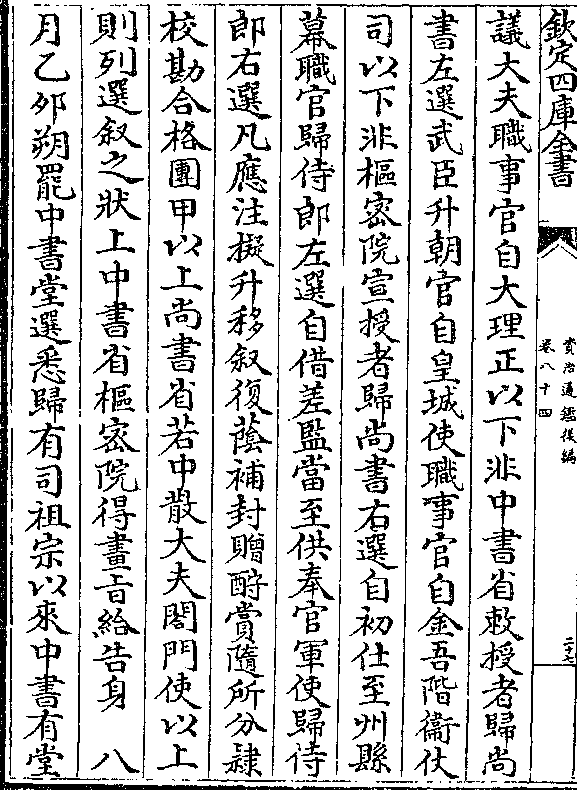 欽定四庫全書
資治通鑑後編
卷八十四
二十七
議大夫職事官自大理正以下非中書省敕授者歸尚
書左選武臣升朝官自皇城使職事官自金吾階衞仗
司以下非樞密院宣授者歸尚書右選自初仕至州縣
幕職官歸侍郎左選自借差監當至供奉官軍使歸侍
郎右選凡應注擬升移叙復蔭補封贈酧賞隨所分隷
校勘合格團甲以上尚書省若中散大夫閤門使以上
則列選叙之狀上中書省樞密院得畫旨給告身　八
月乙夘朔罷中書堂選悉歸有司祖宗以來中書有堂